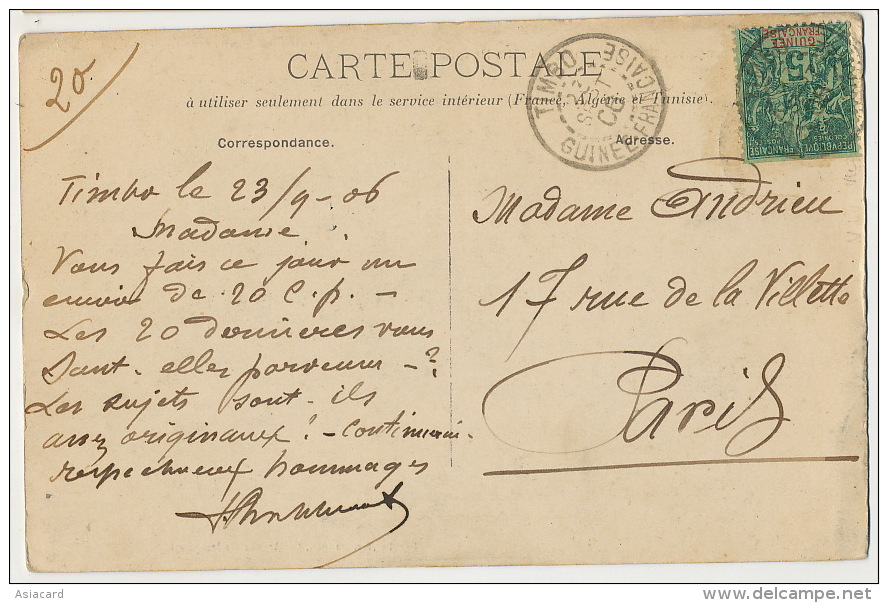 20
CARTE POSTALE
à utiliser seulement dans le service intérieur (France, Algérie et Tunisie).
Correspondance.
Adresse.
TIMBO
GUINEE FRANÇAISE
GUINÉE
FRANÇAISE
5
REPUBLIQUE FRANÇAISE
COLONIES POSTES
Timbo le 23/9-06
Madame
Vous fais ce jour un
envoi de 20 C.p. –
Les 20 dernières vous
Sont-elles parvenues –?
Les sujets sont-ils
assez originaux! – Continuerai.
respectueux hommages
Madame Andrieu
17 rue de la Villette
Paris
Asiacard
delcampe.net